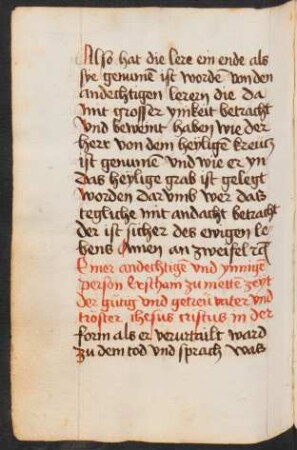 Also hat die lere ein ende als
sye genumē ist wordē von den
andechtigen lerern die da
mit grosser ynikeit betracht
vnd beweint haben wie der
herr von dem heyligē kreucz
ist genumē vnd wie er yn
das heylige grab ist gelegt
worden dar vmb wer das
tegliche mit andacht betracht
der ist sicher des ewigen le
bens Amen an zweifel
Einer andechtigē vnd ynnige
person erscham zu mette zeyt
der gütig vnd getreü vater vnd
tröster ihesus cristus in der
form als er verurtailt ward
zu dem tod vnd sprach was